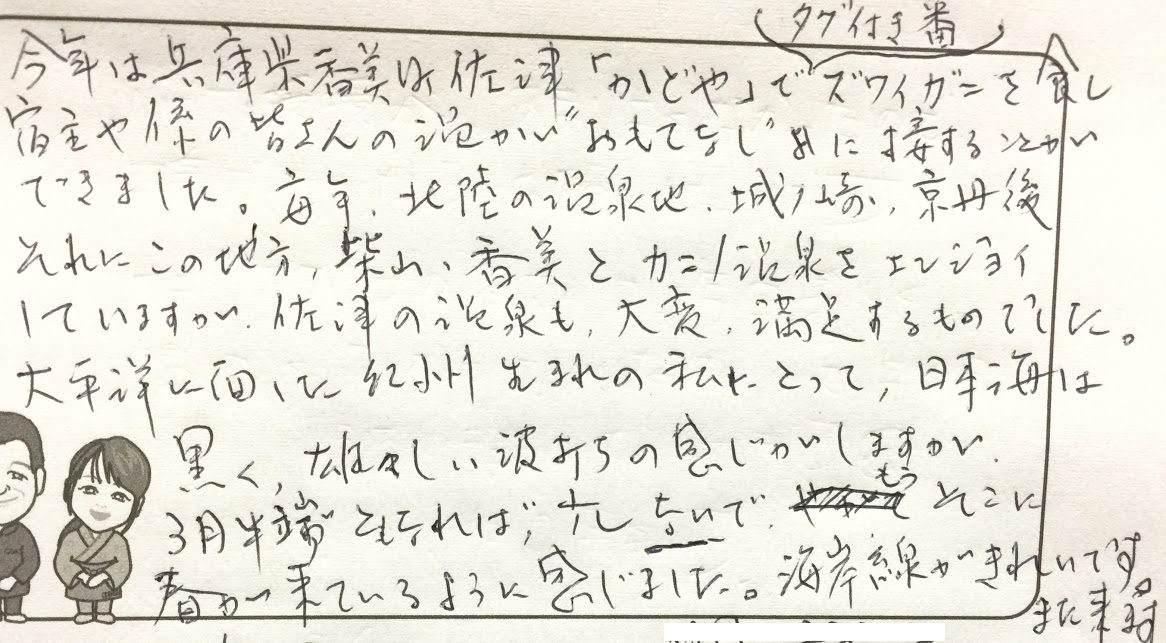 タグ付き番
今年は兵庫県香美町佐津「かどや」でズワイガニを食し
宿主や係の皆さんの温かい"おもてなし"に接することが
できました。毎年、北陸の温泉地、城ノ崎、京丹後
それにこの地方、柴山、香美とカニ/温泉をエンジョイ
していますが、佐津の温泉も、大変、満足するものでした。
大平洋に面した紀州生まれの私にとって、日本海は
黒く、雄々しい波打ちの感じがしますが、
3月半端ともなれば、少しないで、もうそこに
春が来ているように感じました。海岸線がきれいです。
また来ます